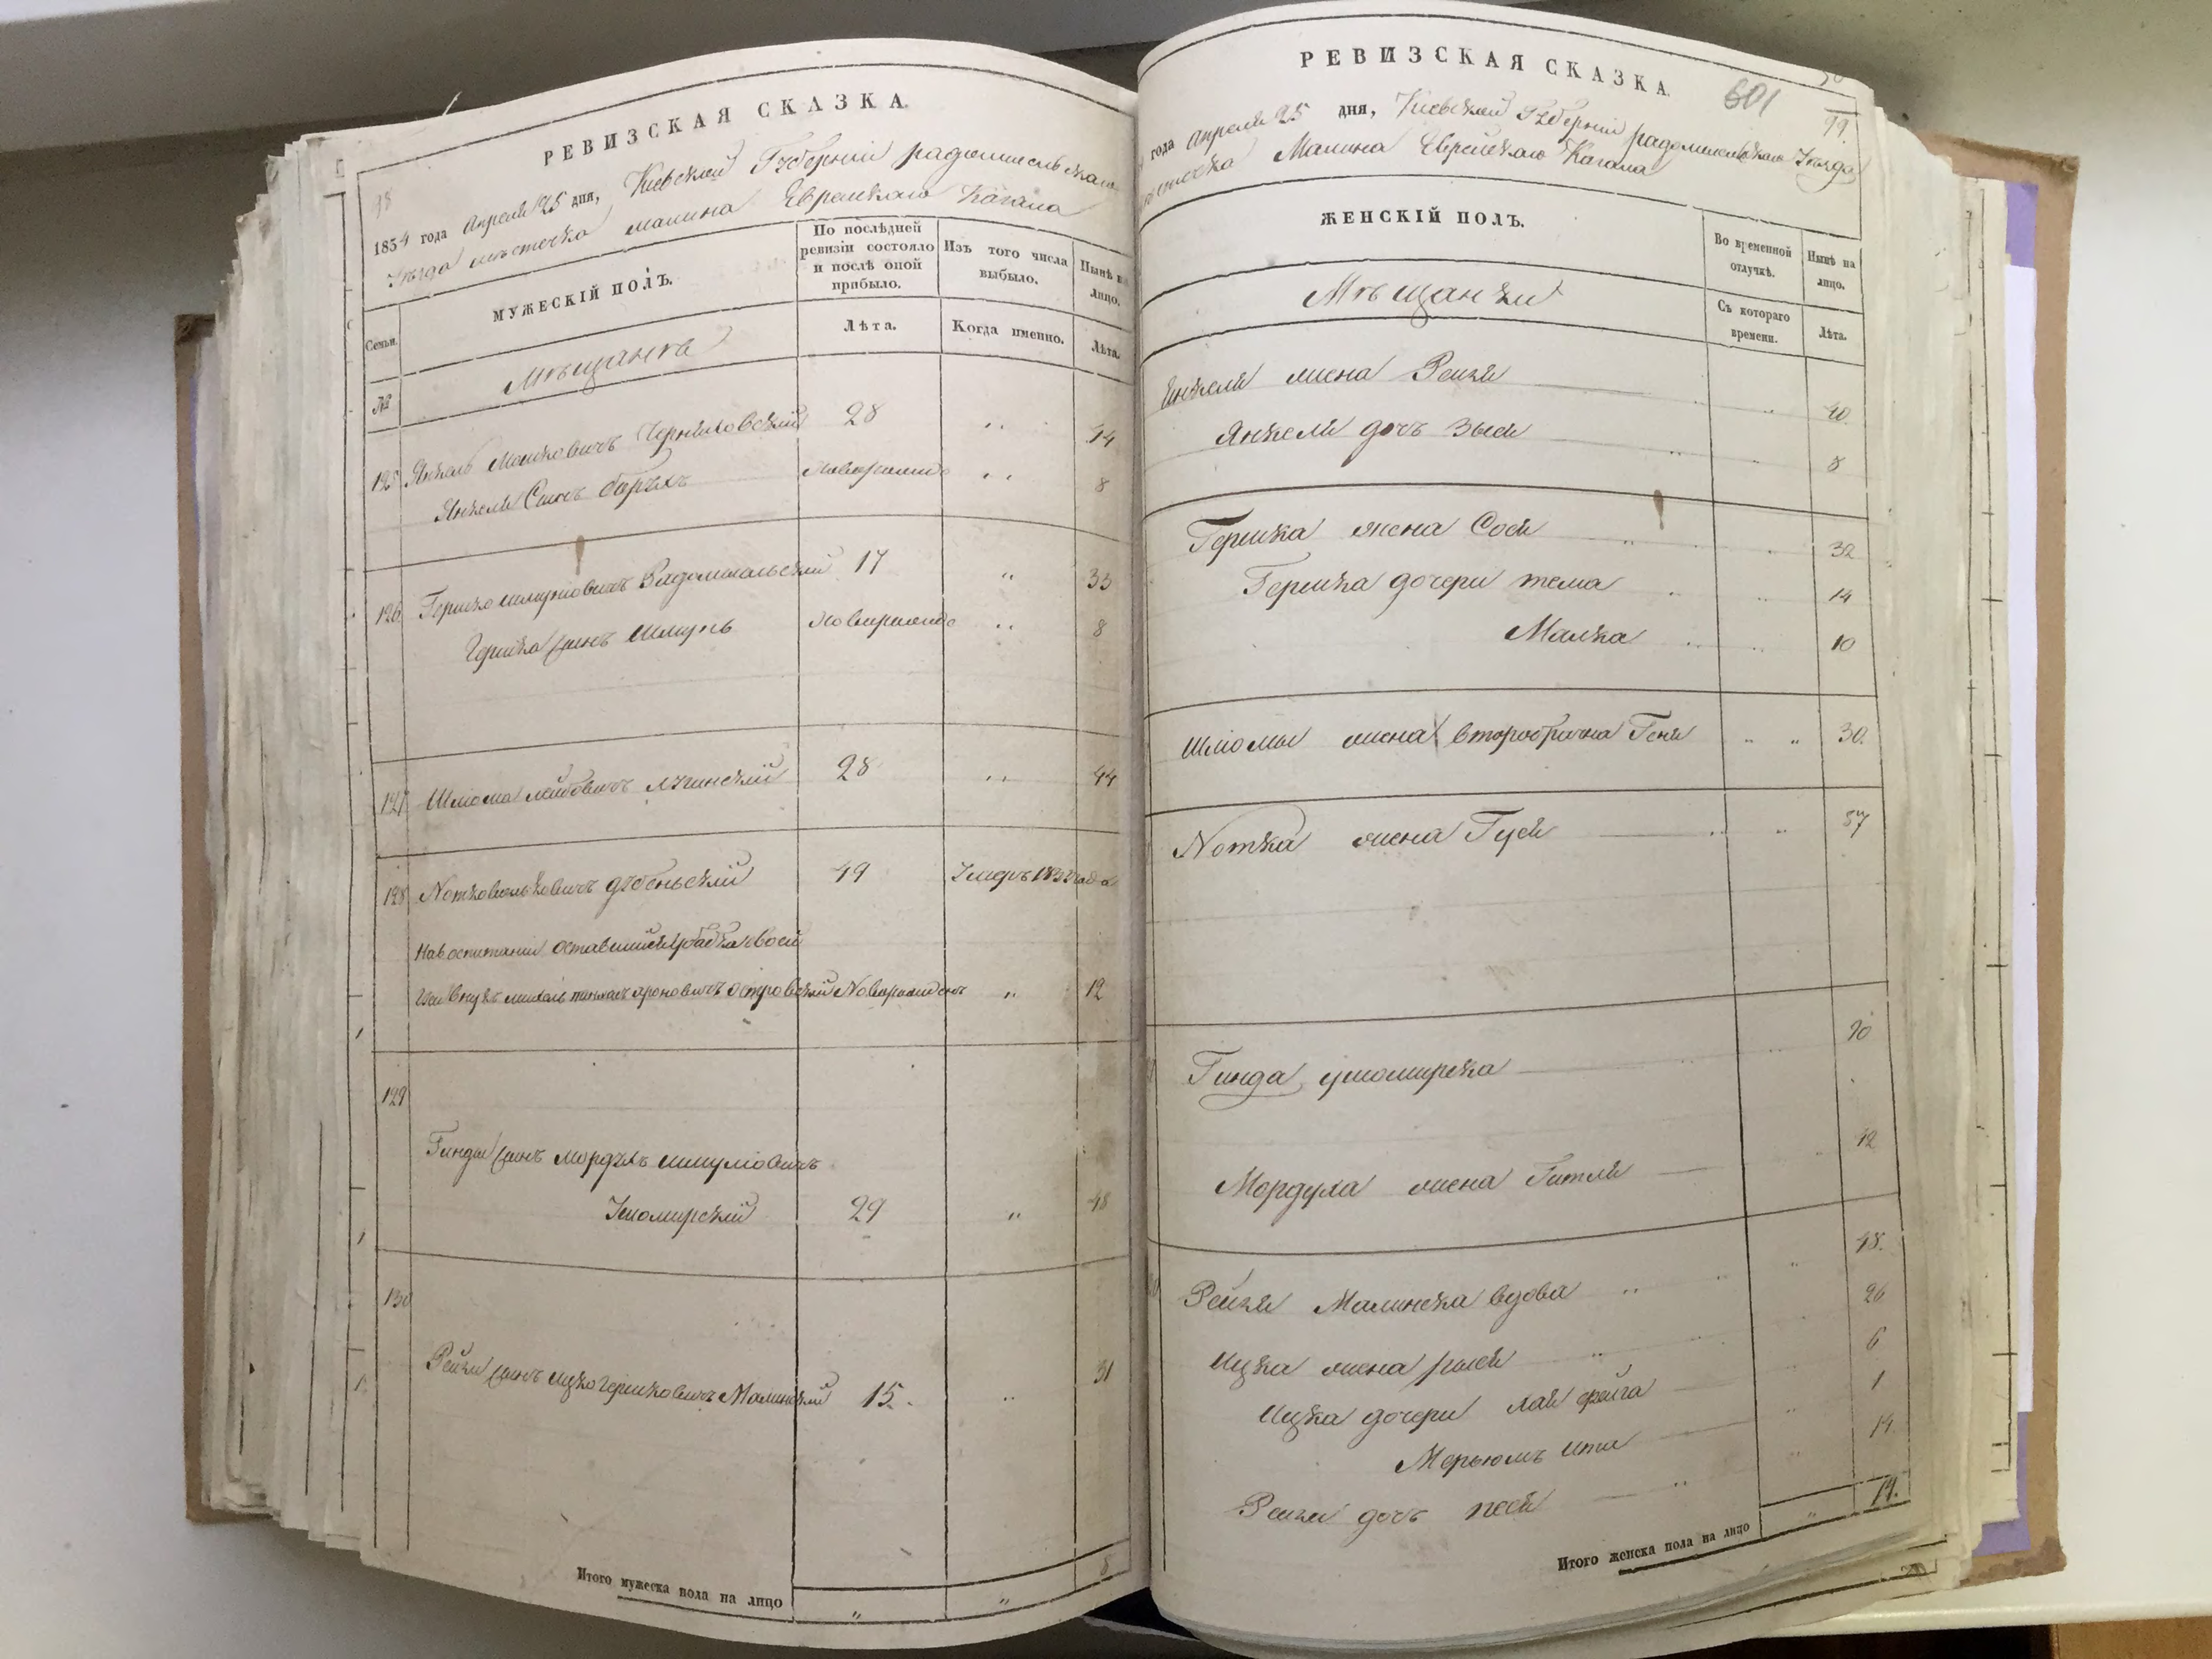 РЕВИЗСКАЯ СКАЗКА.
98
1854 года Апреля 25 дня, Киевской Губерніи радомысльскаго
Уѣзда мѣстечка малина Еврейскаго Кагала
Семьи.
№
МУЖЕСКІЙ ПОЛЪ.
По послѣдней ревизіи состояло и послѣ оной прибыло.
Изъ того числа выбыло.
Нынѣ на лицо.
Лѣта.
Когда именно.
Лѣта.
Мѣщанѣ
125 Янкель Мошковичъ Черняховскій 28 " 44
Янкеля Сынъ борухъ новорожденъ " 8
126 Гершко шмулiовичъ Радомысльскій 17 " 33
Гершка Сынъ Шмуль новорожденъ " 8
127 Шлiома лейбовичъ 28 " 44
128 Nотко вольковичъ дубенскій 49 Умеръ 1852 года
На воспитаніи оставшійся у бабки своей
внукъ михель пинхасъ ароновичъ островскій Новорожденъ " 12
129
Гинды Сынъ мордухъ шмулiовичъ
Ушомирскій 29 " 48
130
Рейзи Сынъ ицко гершковичъ Малинскій 15. " 31
Итого мужеска пола на лицо " " 8
РЕВИЗСКАЯ СКАЗКА.
601
99.
года Апреля 25 дня, Киевской Губерніи радомысльскаго Уѣзда
мѣстечка Малина Еврейскаго Кагала
ЖЕНСКІЙ ПОЛЪ.
Во временной отлучкѣ.
Нынѣ на лицо.
Съ котораго времени.
Лѣта.
Мѣщанки
Янкеля жена Рейзя " 40.
Янкеля дочъ Зыся " 8
Гершка жена Сося " " 32
Гершка дочери тема " " 14
Малка " " 10
Шлiомы жена второбрачна Геня " " 30.
Nотка жена Гуся " " 57
Гинда ушомирска " " 70
Мордуха жена Гитля " 42
Рейзя Малинска вдова " " 48.
Ицка жена рыся " 26
Ицка дочери лая фейга " 6
Мерьюмъ ита " 1
Рейзи дочъ песя " " 14.
Итого женска пола на лицо " 14.